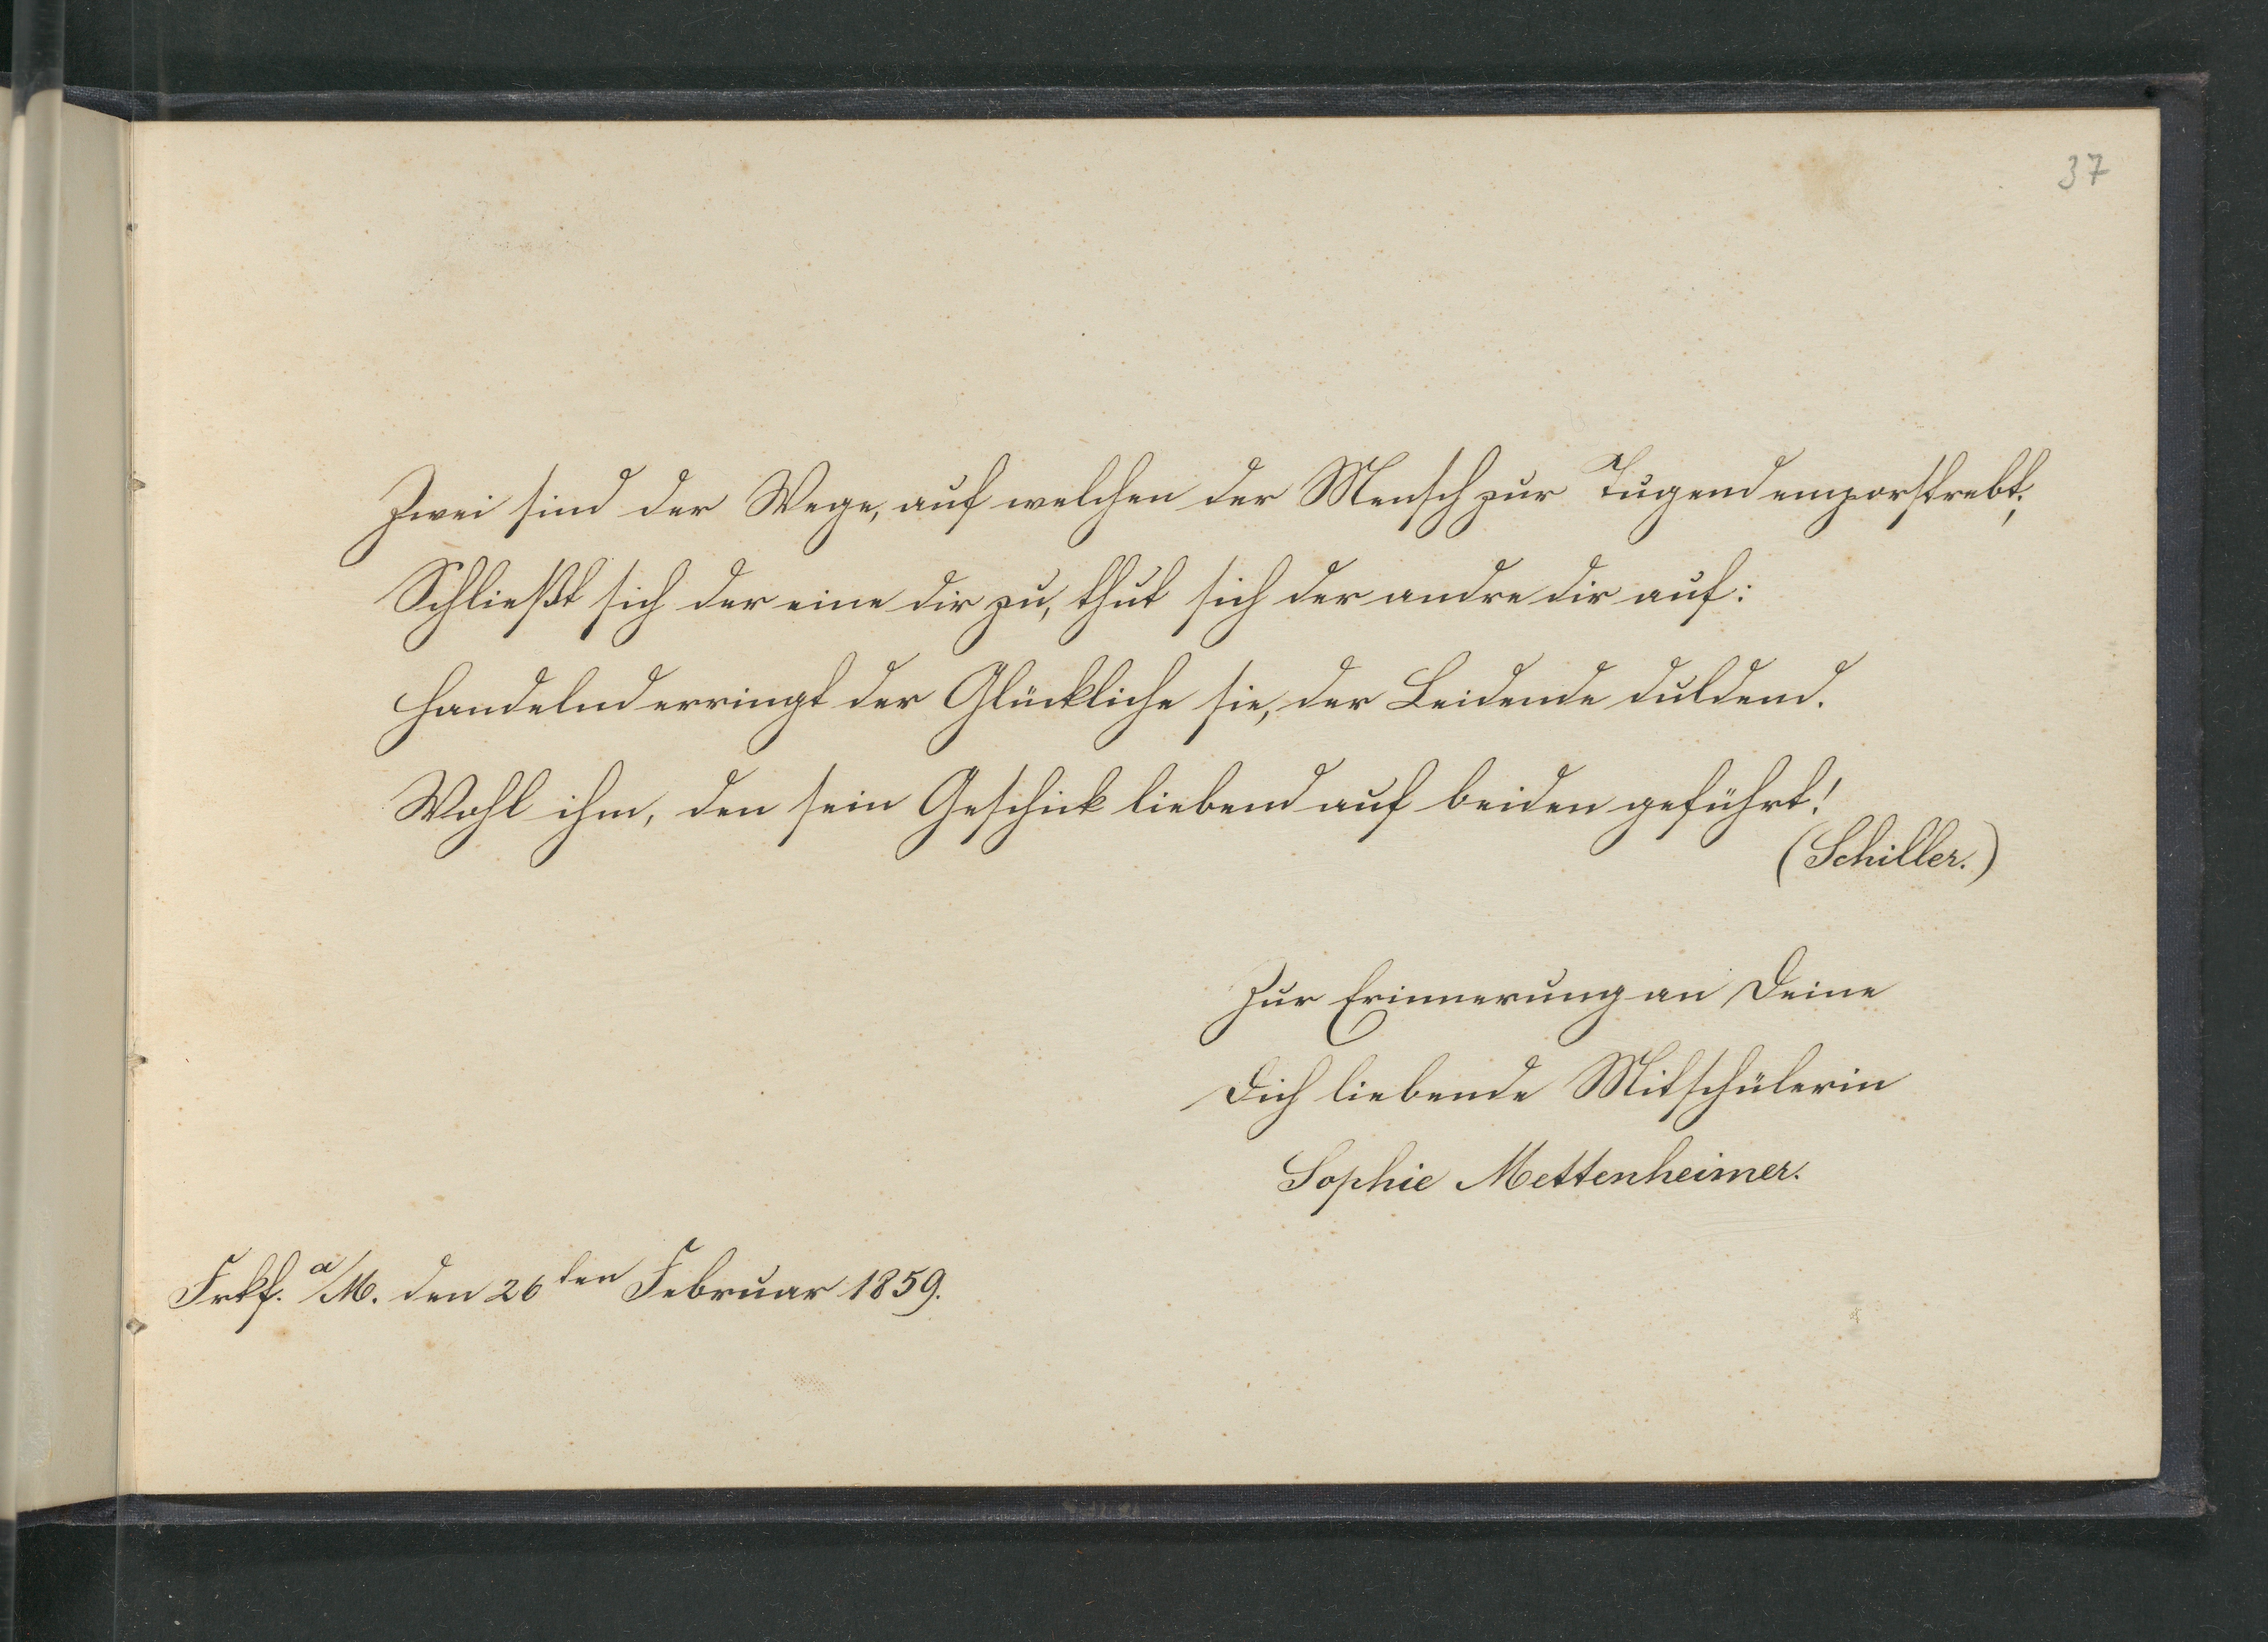 37
Zwei sind der Wege, auf welchen der Mensch zur Tugend emporstrebt;
Schließt sich der eine dir zu, thut sich der andre dir auf:
Handelnd erringt der Glückliche sie, der Leidende duldend.
Wohl ihm, den sein Geschick liebend auf beiden geführt!
(Schiller.)
Zur Erinnerung an Deine
Dich liebende Mitschülerin
Sophie Mettenheimer.
Frkf. a/M. den 26ten Februar 1859.